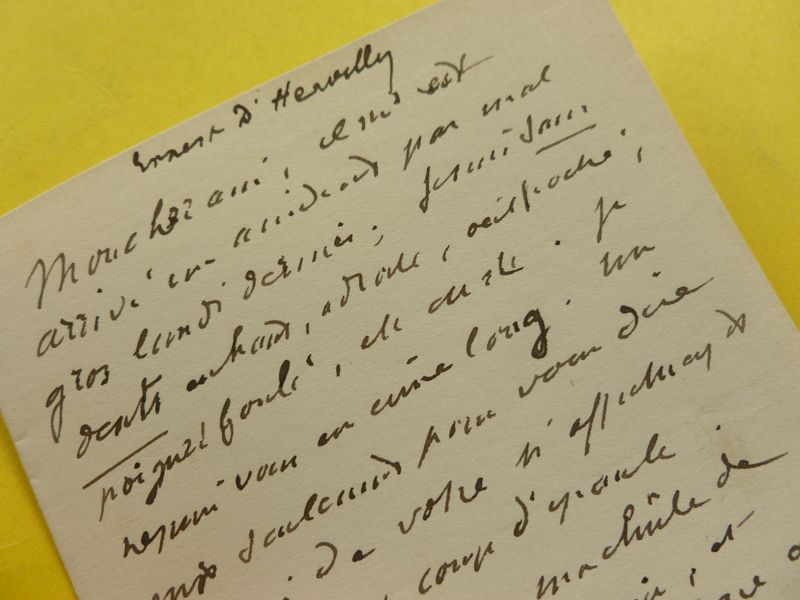 Ernest D'Hervilly
Mon cher ami, il m'est
arrivé un accident pas mal
gros lundi dernier. Je suis sans
dents en haut, à droite, œil poché,
poignet foulé, etc etc. Je
ne puis vous en écrire long. Un
mot seulement pour vous dire
de votre si affectueux
coup d'épaule.
machine de
et